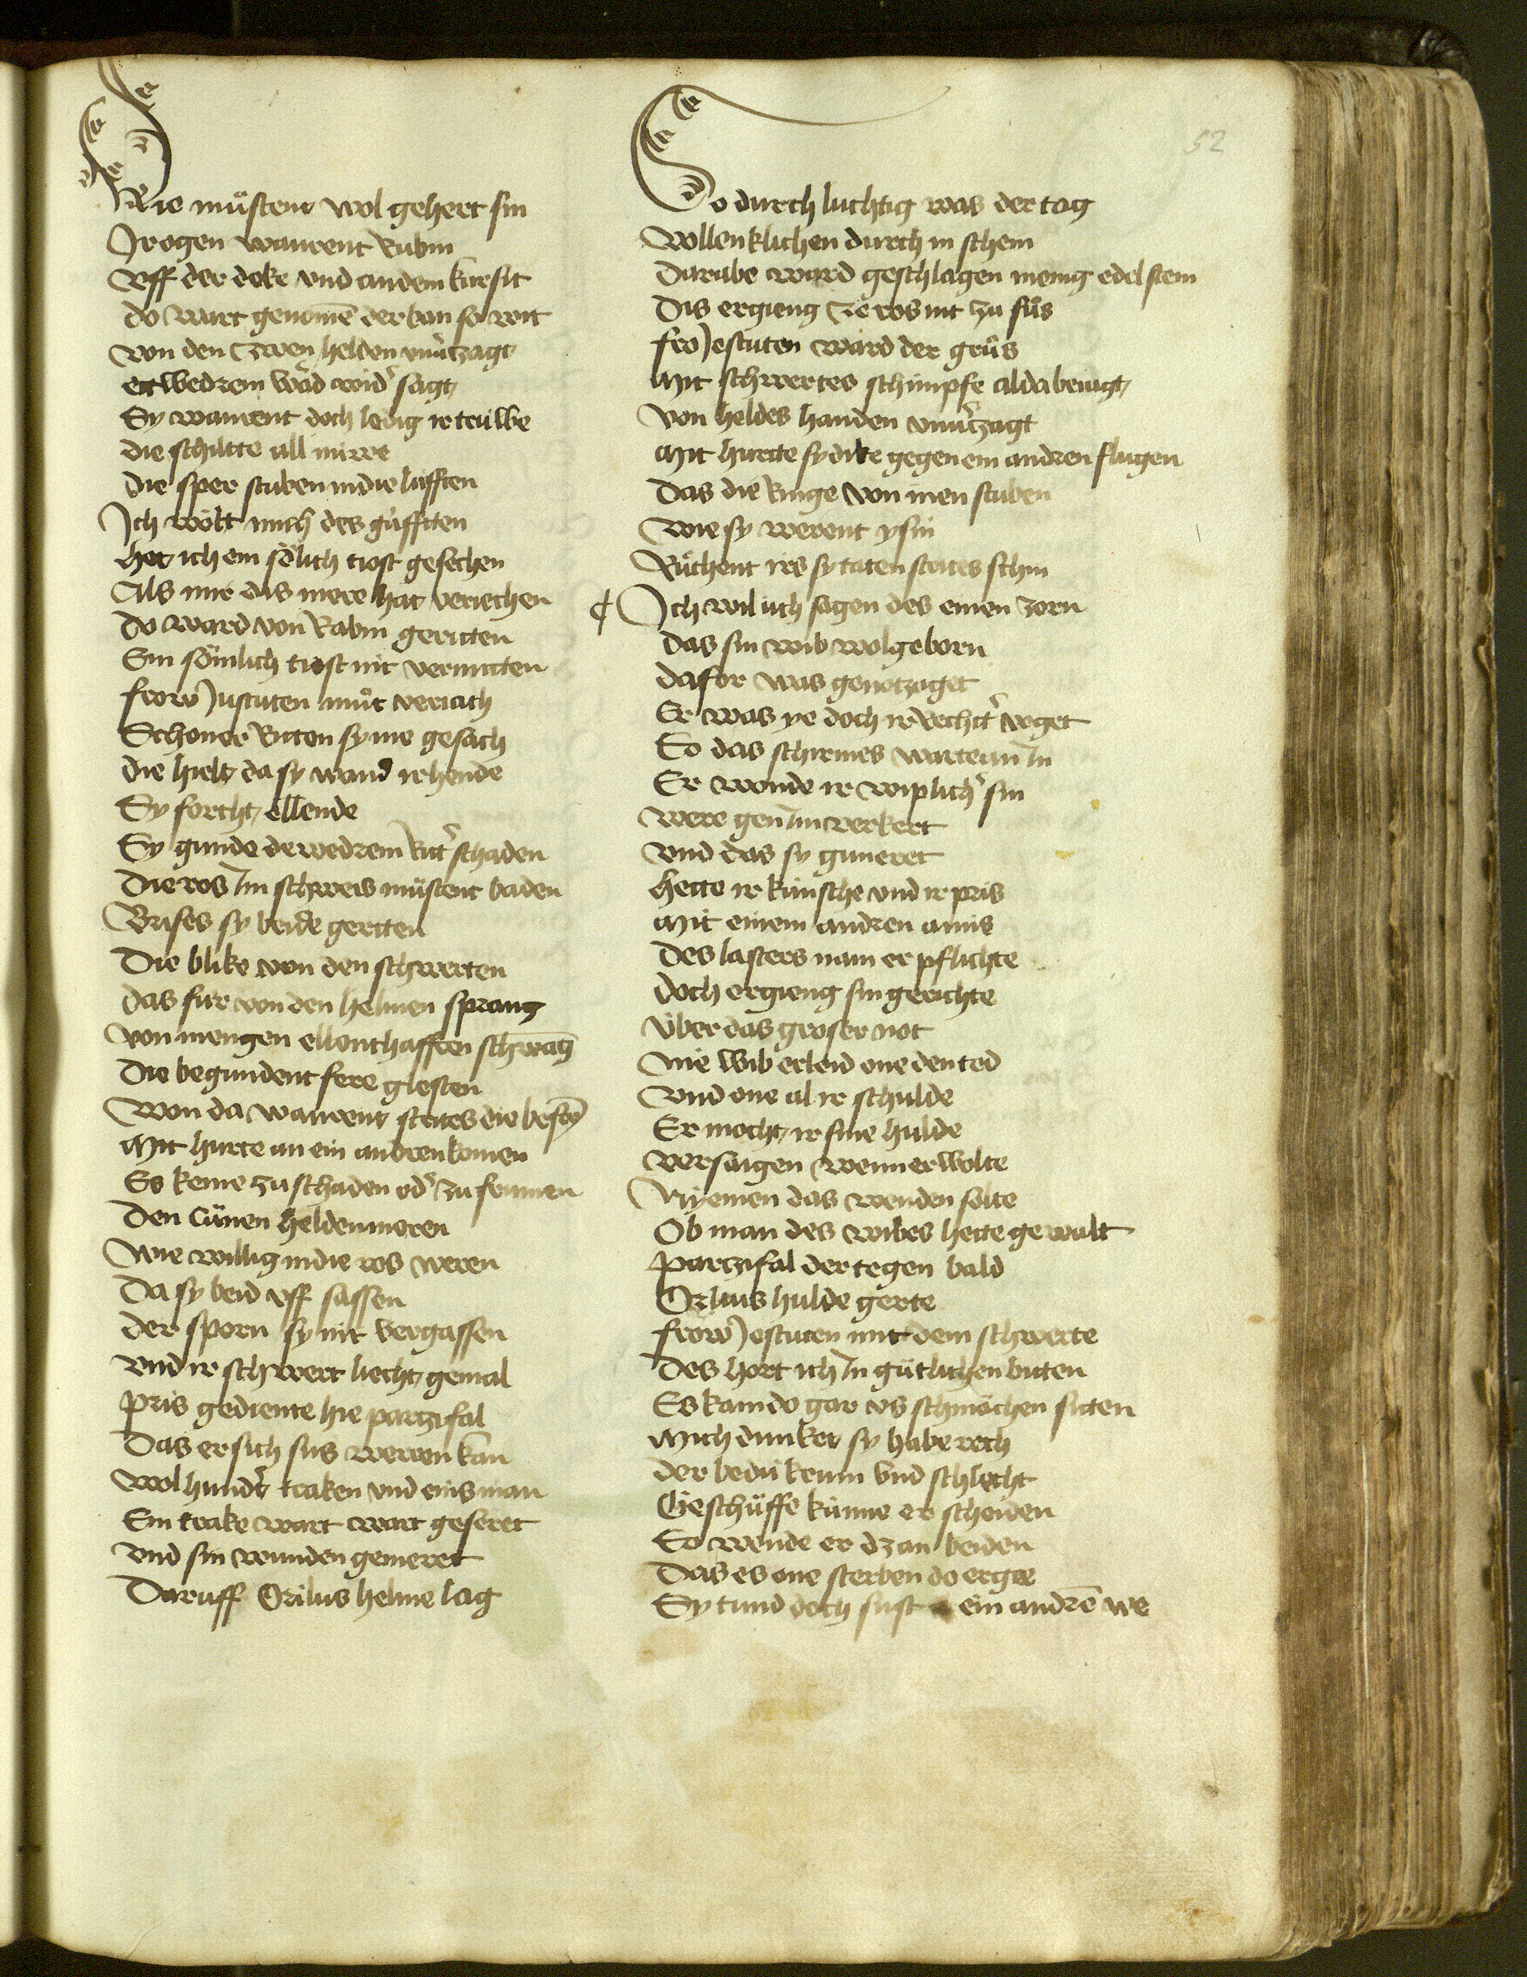 Die müstent wol gehert sin
Ir ogen warent Rubin
Uff der deke und an dem kursit
do wart genomē der ban so wit
von den zwen helden unv̉zagt
etwedrem wăd wid̉ sagt
Sy warent doch ledig ir trülbe
die schiltte all nüwe
die sper stuben in die lüfften
Ich wölt mich des güfften
het ich ein sölich tiost gesechen
Als mir dis mere hat veriechen
do ward von Rabin geritten
Ein sömlich tiost nit vermitten
frow Justuten můt veriach
Schoner Riten sy nie gesach
die hielt da sy wand ir hende
Sy forcht ellende
Sy gunde dewedrem Rit̉ schaden
Die ros Im schweis müstent baden
Brises sy beide gertten
Die blike von den schwerten
das für von den helmen sprang
von mengen ellenthafften schwāg
Die begundent fere glesten
Won da warent strites die bestē
Mit hurte an ein andren komen
Es keme zu schaden od̉ zu fromen
Den Cünen heldenmeren
Wie willig in die ros weren
Da sy beid uff sassen
der sporn sy nit vergassen
und ir schwert liecht gemal
Pris gediente hie parzifal
Das er sich sus weren kan
Wol hund̉t traken und eins man
Ein trake wart wart geseret
und sin wunden gemeret
Daruff Orilus helme lag
So durch luchtig was der tag
Vollenklichen durch in schein
Darabe ward geschlagen menig edel stein
Dis ergieng ze ros nit zu füs
fro Jestuten ward der grüs
Mit schwertes schimpfe alda beiagt
Von heldes handen unv̉zagt
Mit hurtte sy dike gegen ein andren flugen
Das die Ringe von inen stuben
Wie sy werent ysin
Rüchent irs sy taten strites schin
¶ Ich wil üch sagen des einen zorn
das sin wib wolgeborn
dafor was genotzoget
Er was ye doch ir Rechtt̉ voget
So das schirmes wartean In
Er wonde ir wiplich̉ sin
were gen Im verkert
und das sy guneret
Hette ir künsche und ir pris
Mit einem andren amis
Des lasters nam er pflichte
doch ergieng sin gerichte
Über das groser not
Nie wib erleid one den tod
und one al ir schulde
Er mocht ir sine hulde
versaigen wenn er wolte
Nyemen das wenden solte
Ob man des wibes hette gewalt
Parzifal der tegen bald
Orlius hulde gerte
frow Jestuten mit dem schwerte
Des hort ich In gütlichen bitten
Es kam do gar us schmächen sitten
Mich dunket sy habe recht
der bedü krum und schlecht
Geschüffe künne er scheiden
So wende er dz an beiden
Das es one sterben do ergee
Sy tund doch sust ein andrē we
52